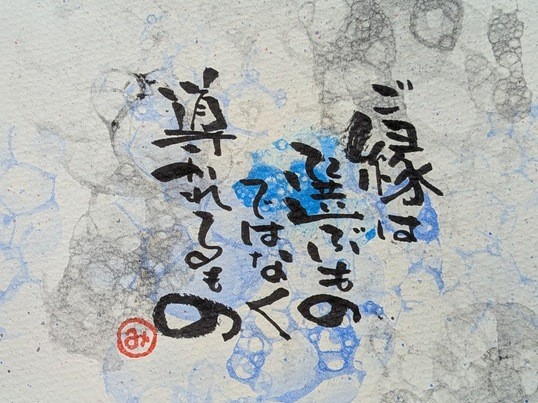 ご縁は
選ぶもの
ではなく
導かれるもの
み